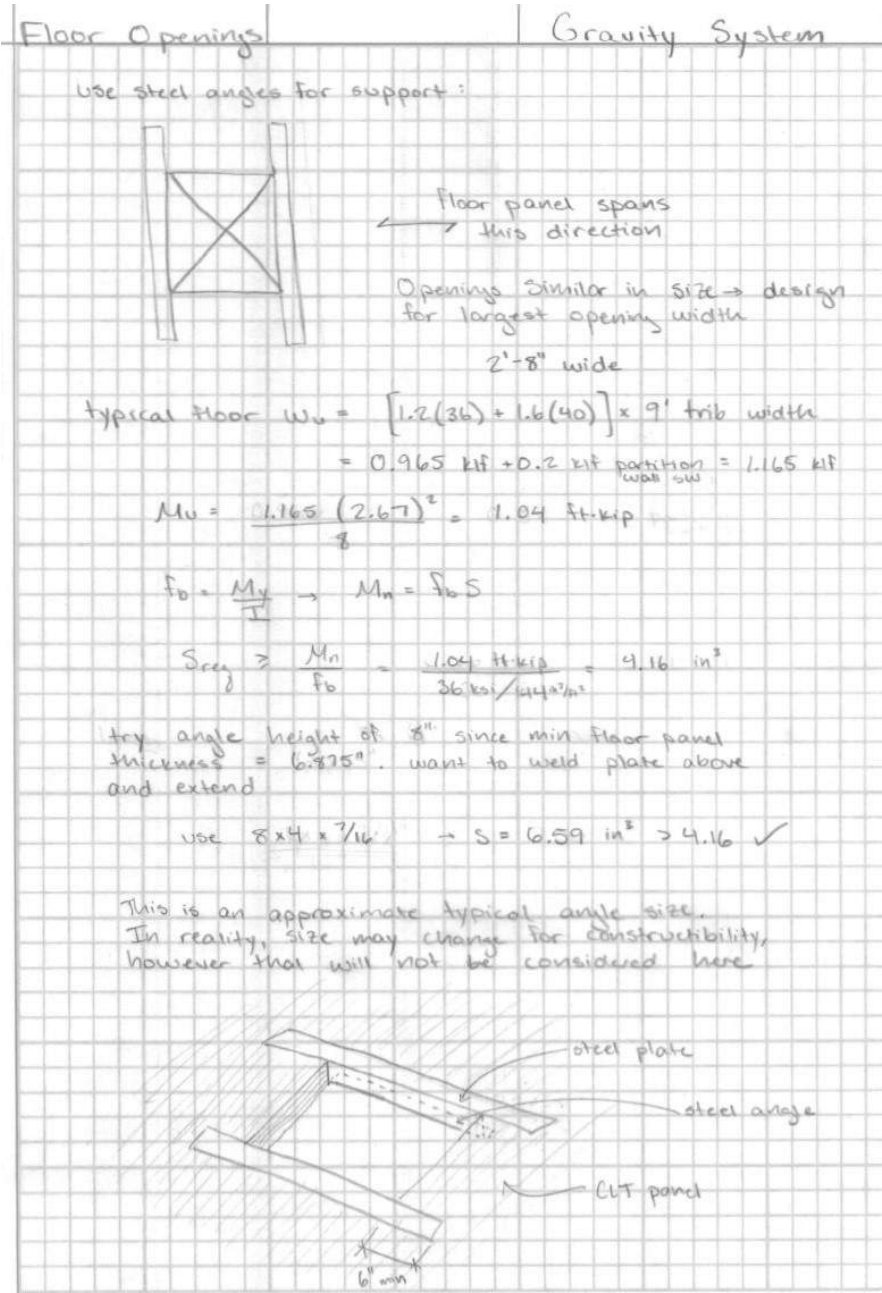 Floor Openings
Gravity System
use steel angles for support :
floor panel spans
this direction
Openings Similar in size → design
for largest opening width
2'-8" wide
typical floor Wu = [1.2(36) + 1.6(40)] x 9' trib width
= 0.965 klf + 0.2 klf partition wall sw = 1.165 klf
Mu = 1.165 (2.67)² / 8 = 1.04 ft·kip
fb = My / I → Mn = fb S
Sreq ≥ Mn / fb = 1.04 ft·kip / 36 ksi/144 = 4.16 in³
try angle height of 8" since min floor panel
thickness = 6.875". want to weld plate above
and extend
use 8x4 x 7/16 → S = 6.59 in³ > 4.16 ✓
This is an approximate typical angle size.
In reality, size may change for constructibility,
however that will not be considered here
steel plate
steel angle
CLT panel
6" min